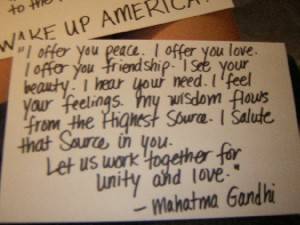 to the
WAKE UP AMERICA!
"I offer you peace. I offer you love.
I offer you friendship. I see your
beauty. I hear your need. I feel
your feelings. My wisdom flows
from the Highest Source. I Salute
that Source in you.
Let us work together for
unity and love."
- Mahatma Gandhi